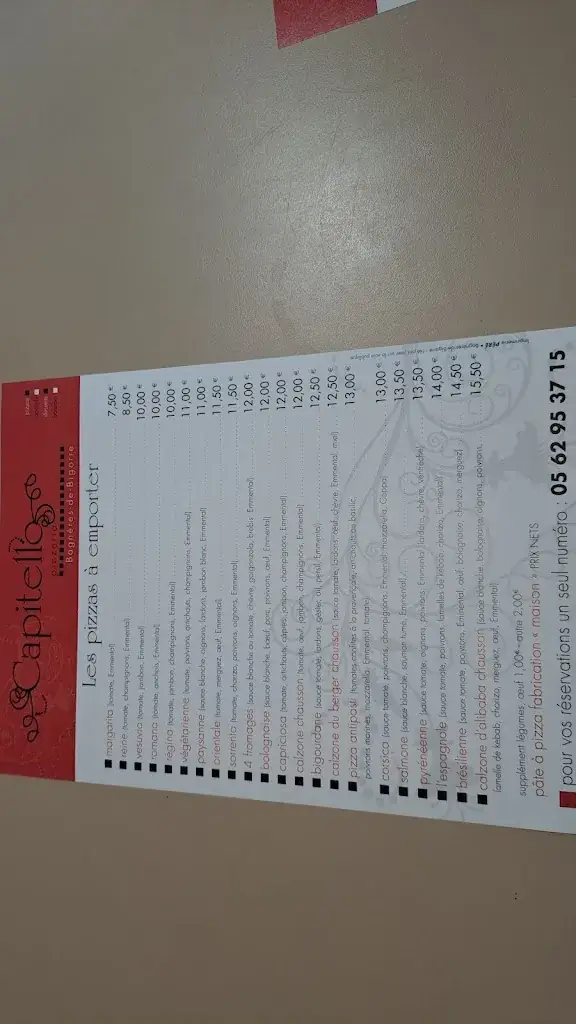 Capitello
pizzeria
Bagnères de Bigorre
Les pizzas à emporter
margarita (tomate, Emmental) 7,50 €
reine (tomate, champignons, Emmental) 8,50 €
vesuvio (tomate, jambon, Emmental) 10,00 €
romana (tomate, anchois, Emmental) 10,00 €
regina (tomate, jambon, champignons, Emmental) 10,00 €
végétarienne (tomate, poivrons, artichauts, champignons, Emmental) 11,00 €
paysanne (sauce blanche, oignons, lardons, jambon blanc, Emmental) 11,00 €
orientale (tomate, merguez, œuf, Emmental) 11,50 €
sorrento (tomate, chorizo, poivrons, oignons, Emmental) 11,50 €
4 fromages (sauce blanche ou tomate, chèvre, gorgonzola, brebis, Emmental) 12,00 €
bolognaise (sauce blanche, bœuf, porc, poivrons, œuf, Emmental) 12,00 €
capricciosa (tomate, artichauts, câpres, jambon, champignons, Emmental) 12,00 €
calzone chausson (tomate, œuf, jambon, champignons, Emmental) 12,00 €
bigourdane (sauce tomate, lardons, gésier, ail, persil, Emmental) 12,50 €
calzone du berger chausson (sauce tomate, lardons, œuf, chèvre, Emmental, miel) 12,50 €
pizza antipasti (tomates confites à la provençale, artichauts basilic, 13,00 €
poivrons marinés, mozzarella, Emmental, tomate)
corsica (sauce tomate, poivrons, champignons, Emmental, mozzarella, Coppa) 13,00 €
salmone (sauce blanche, saumon fumé, Emmental) 13,50 €
pyrénéenne (sauce tomate, oignons, poivrons, Emmental, lardons, chèvre, ventrèche) 13,50 €
l'espagnole (sauce tomate, poivrons, lamelles de kebab, chorizo, Emmental) 14,00 €
brésilienne (sauce tomate, poivrons, Emmental, œuf, bolognaise, chorizo, merguez) 14,50 €
calzone d'alibaba chausson (sauce blanche, bolognaise, oignons, poivrons, 15,50 €
lamelle de kebab, chorizo, merguez, œuf, Emmental)
supplément légumes, œuf 1,00€ - autre 2,00€
pâte à pizza fabrication « maison » PRIX NETS
pour vos réservations un seul numéro : 05 62 95 37 15
Imprimerie PÉRÉ • Bagnères-de-Bigorre - Ne pas jeter sur la voie publique